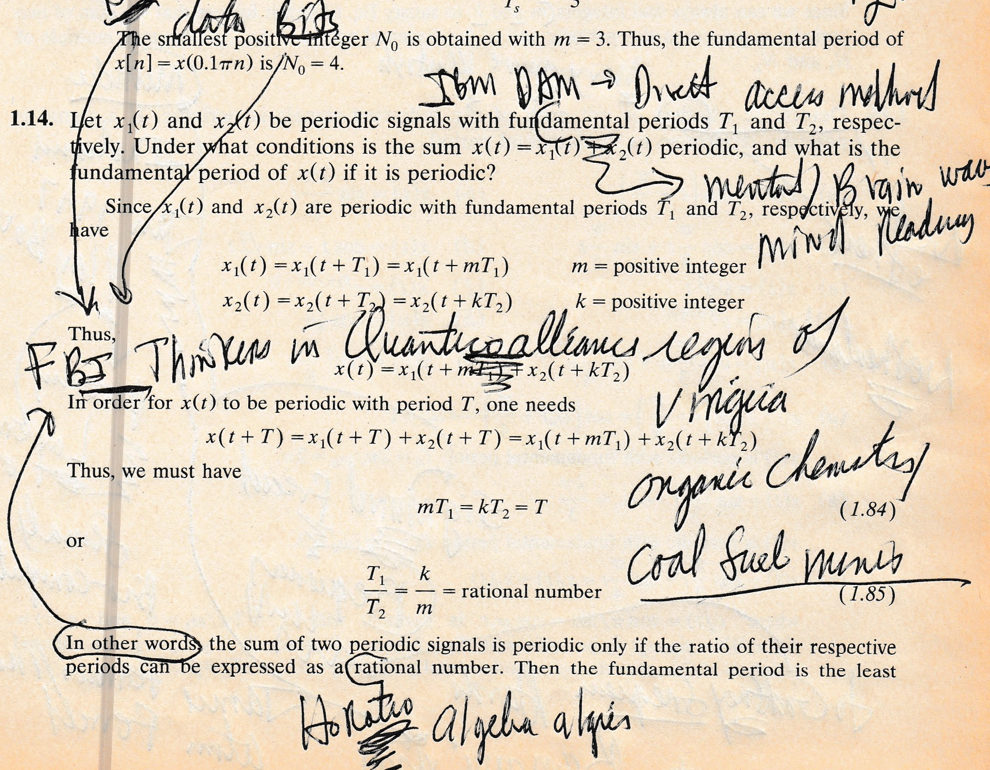 data Bits
The smallest positive integer N₀ is obtained with m = 3. Thus, the fundamental period of
x[n] = x(0.1πn) is N₀ = 4.
Ibm DAM → Direct access method
1.14. Let x₁(t) and x₂(t) be periodic signals with fundamental periods T₁ and T₂, respec-
tively. Under what conditions is the sum x(t) = x₁(t) + x₂(t) periodic, and what is the
fundamental period of x(t) if it is periodic?
mental / Brain wav
Since x₁(t) and x₂(t) are periodic with fundamental periods T₁ and T₂, respectively, we
have
mind Reading
x₁(t) = x₁(t + T₁) = x₁(t + mT₁) m = positive integer
x₂(t) = x₂(t + T₂) = x₂(t + kT₂) k = positive integer
Thus,
FBI Thinkers in Quantico region of
x(t) = x₁(t + mT₁) + x₂(t + kT₂)
In order for x(t) to be periodic with period T, one needs
x(t + T) = x₁(t + T) + x₂(t + T) = x₁(t + mT₁) + x₂(t + kT₂)
Thus, we must have
organic Chemistry
mT₁ = kT₂ = T (1.84)
or
Coal fuel mines
T₁/T₂ = k/m = rational number (1.85)
In other words, the sum of two periodic signals is periodic only if the ratio of their respective
periods can be expressed as a rational number. Then the fundamental period is the least
HoRatio Algebra